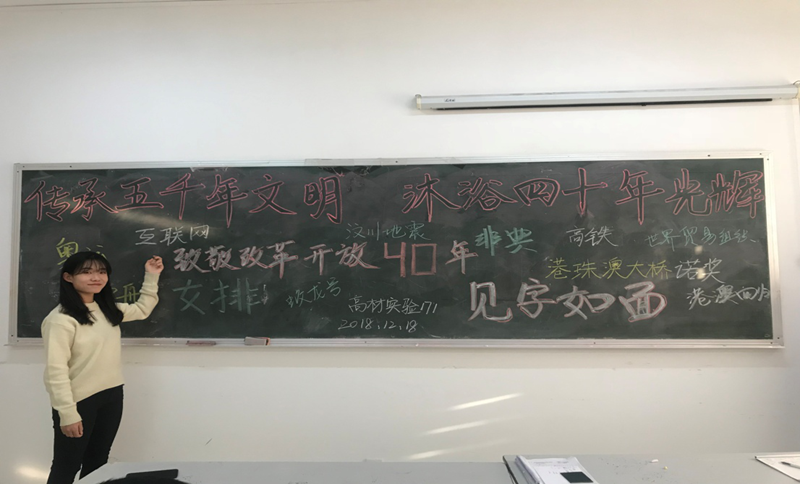 传承五千年文明 沐浴四十年光辉
互联网 汶川地震 非典 高铁 世界贸易组织
奥
致敬改革开放40年
港珠澳大桥 诺奖
女排 蛟龙号 高材实验171 见字如面 港澳回归
2018.12.18